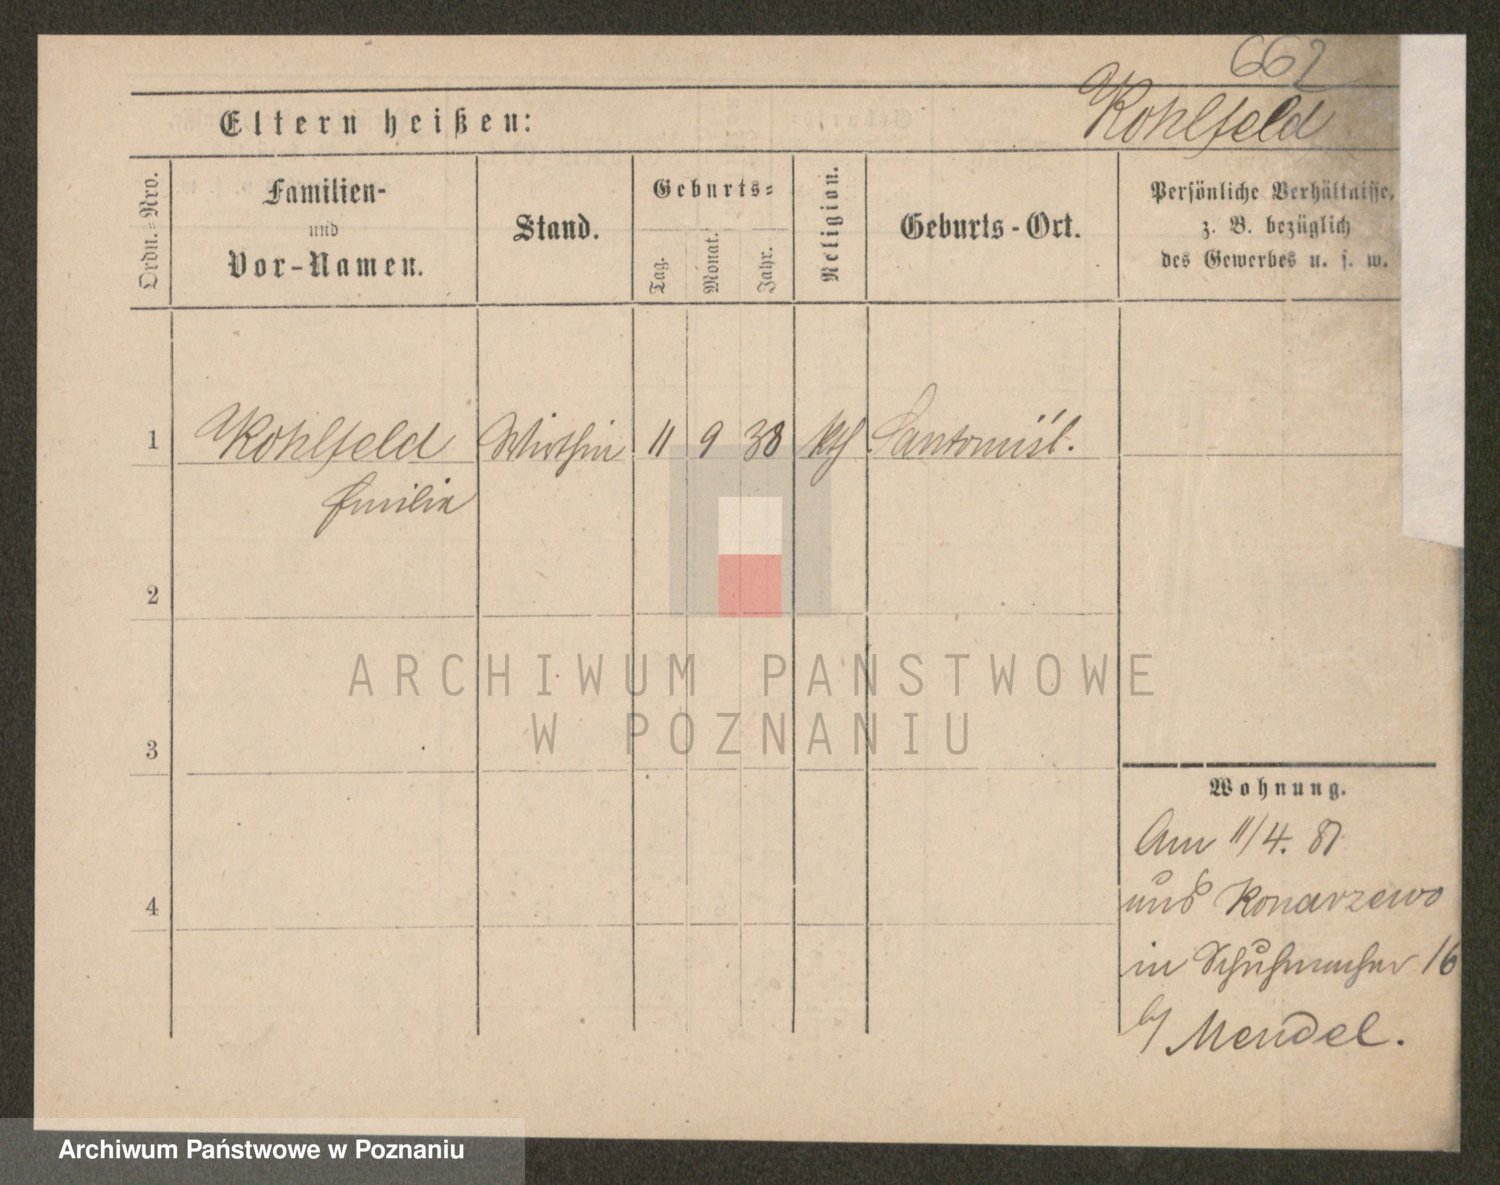 662
Kohlfeld
Eltern heißen:
Ordn.-Nro.
Familien-
und
Vor-Namen.
Stand.
Geburts-
Tag.
Monat.
Jahr.
Religion.
Geburts-Ort.
Persönliche Verhältnisse,
z. B. bezüglich
des Gewerbes u. s. w.
1 Kohlfeld Wirthin 11 9 38 kth Santomiśl.
Emilia
2
3
4
Wohnung.
Am 11/4. 81
aus Konarzewo
in Schuhmacher 16
b/ Mendel.
ARCHIWUM PAŃSTWOWE
W POZNANIU
Archiwum Państwowe w Poznaniu